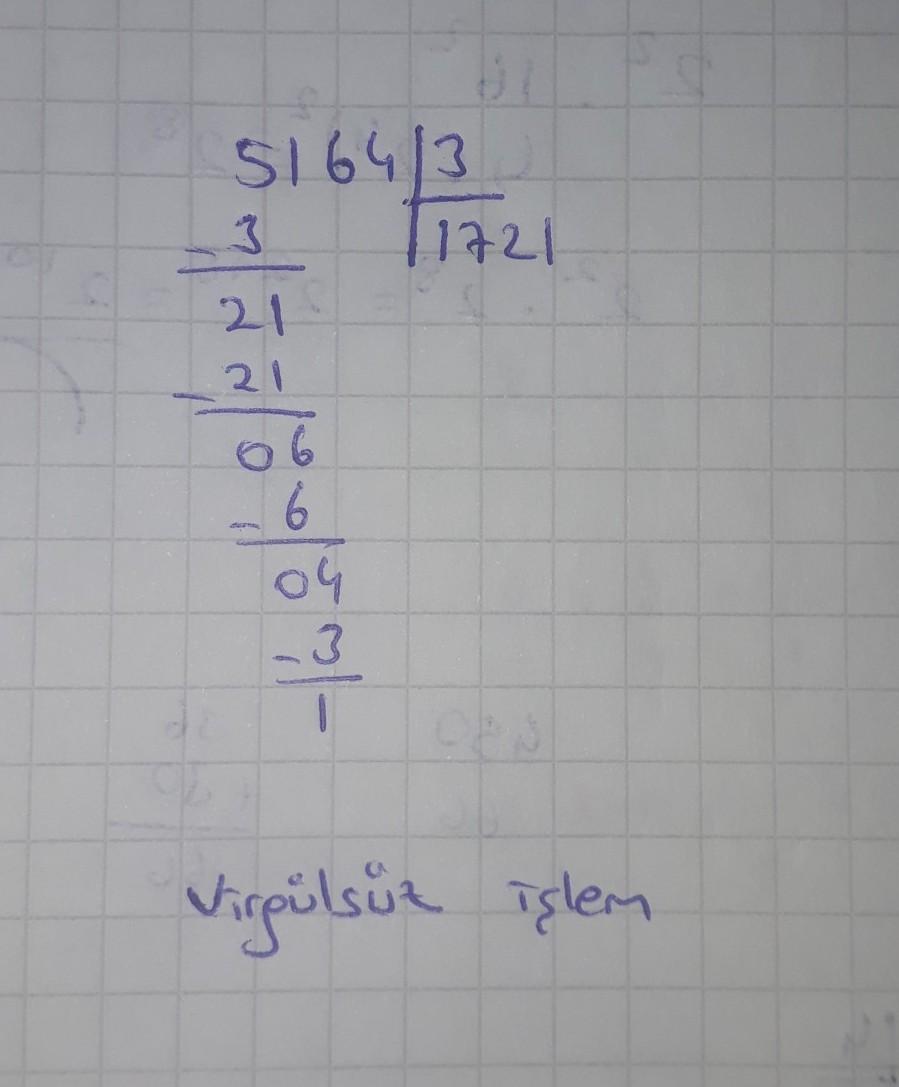 5164 3
- 3 1721
21
- 21
06
- 6
04
- 3
1
Virgülsüz işlem